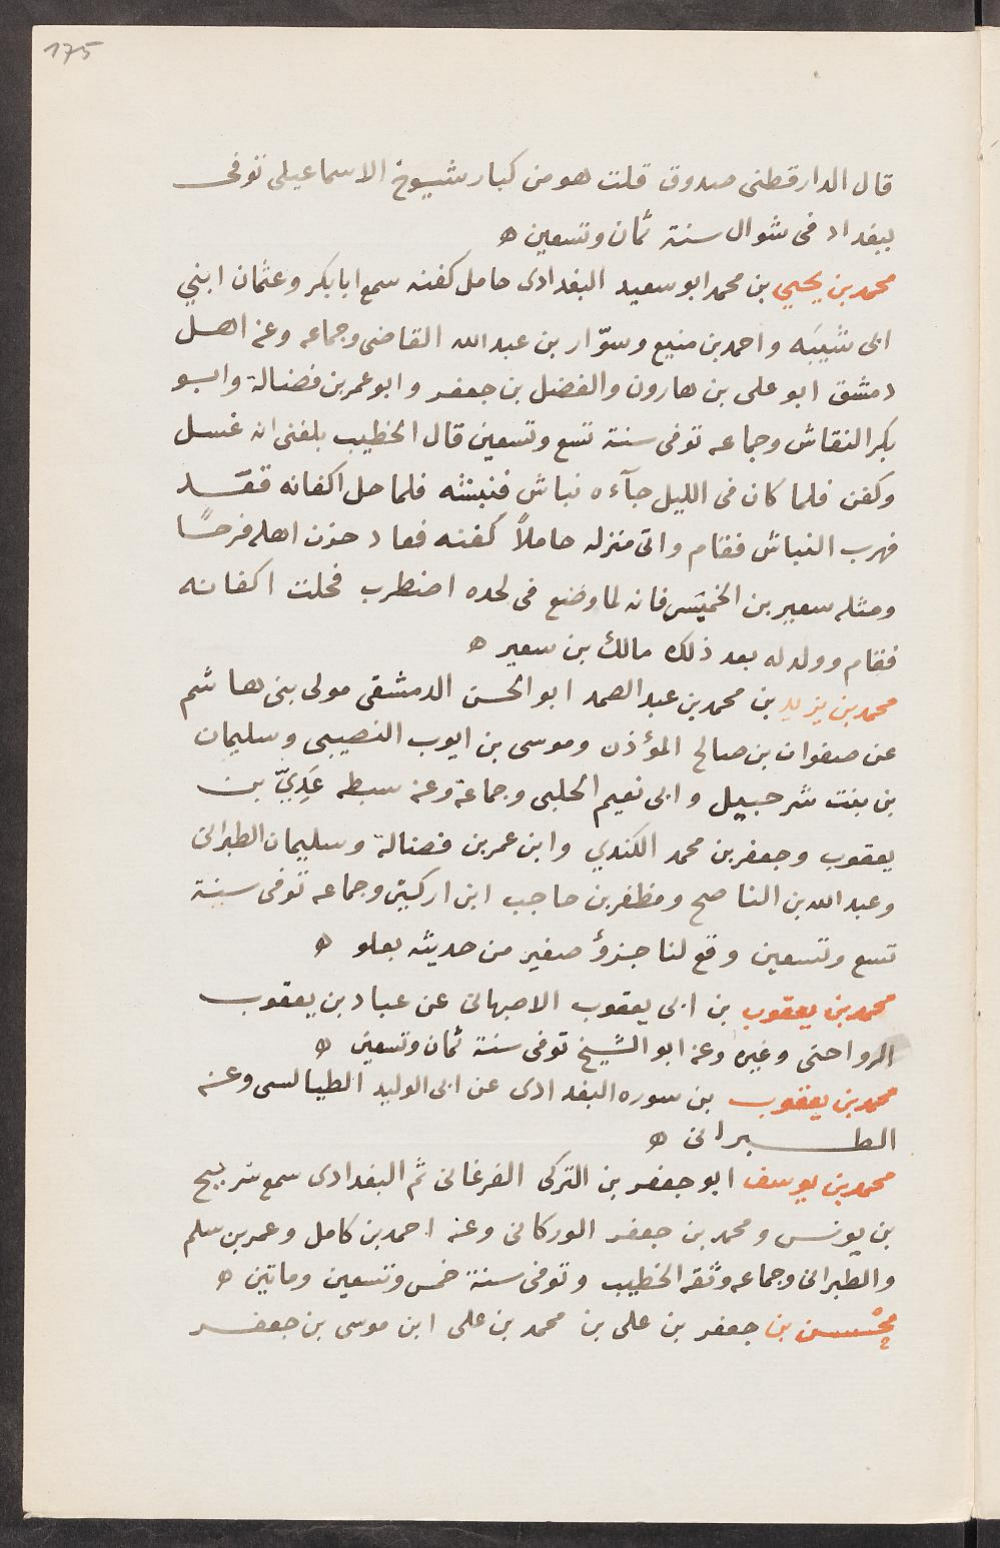 175
قال الدارقطنى صدوق قلت هو من كبار شيوخ الاسماعيلى توفى
ببغداد فى شوال سنة ثمان وتسعين ه
محمد بن يحيي بن محمد ابو سعيد البغدادى حامل كفنه سمع ابا بكر وعثمان ابني
ابى شَيبَه واحمد بن منيع وسوّار بن عبد الله القاضى وجماعه وعنه اهل
دمشق ابو على بن هارون والفضل بن جعفر وابو عمر بن فضالة وابو
بكر النقاش وجماعه توفى سنة تسع وتسعين قال الخطيب بلغنى انه غسل
وكفن فلما كان فى الليل جآءه نباش فنبشه فلما حل اكفانه قعَد
فهرب النباش فقام واتى منزله حاملاً كفنه فعاد حزن اهله فرحًا
ومثله سعير بن الخميَس فانه لما وضع فى لحده اضطرب فحلت اكفانه
فقام وولد له بعد ذلك مالك بن سعير ه
محمد بن يزيد بن محمد بن عبد الصمد ابو الحسن الدمشقى مولى بنى هاشم
عن صفوان بن صالح المؤذن وموسى بن ايوب النصيبى وسليمان
بن بنت شرحبيل وابى نعيم الحلبى وجماعة وعنه سبطه عَدِيّ بن
يعقوب وجعفر بن محمد الكندي وابن عمر بن فضالة وسليمان الطبرانى
وعبد الله بن الناصح ومظفر بن حاجب ابن اركين وجماعه توفى سنة
تسع وتسعين وقع لنا جزؤ صغير من حديثه بعلو ه
محمد بن يعقوب بن ابى يعقوب الاصبهانى عن عباد بن يعقوب
الرواجنى وغيره وعنه ابو الشيخ توفى سنة ثمان وتسعين ه
محمد بن يعقوب بن سوره البغدادى عن ابى الوليد الطيالسى وعنه
الطبرانى ه
محمد بن يوسف ابو جعفر بن التركى الفرغانى ثم البغدادى سمع سريج
بن يونس ومحمد بن جعفر الوركانى وعنه احمد بن كامل وعمر بن سلم
والطبرانى وجماعه وثقه الخطيب وتوفى سنة خمس وتسعين وماتين ه
محْسن بن جعفر بن على بن محمد بن على ابن موسى بن جعفر